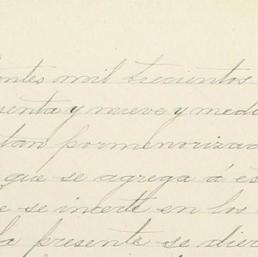 ntes mil trecientos
senta y nueve y medi
tan pormenorizad
que se agrega á es
e se inserte en los
la presente se dier